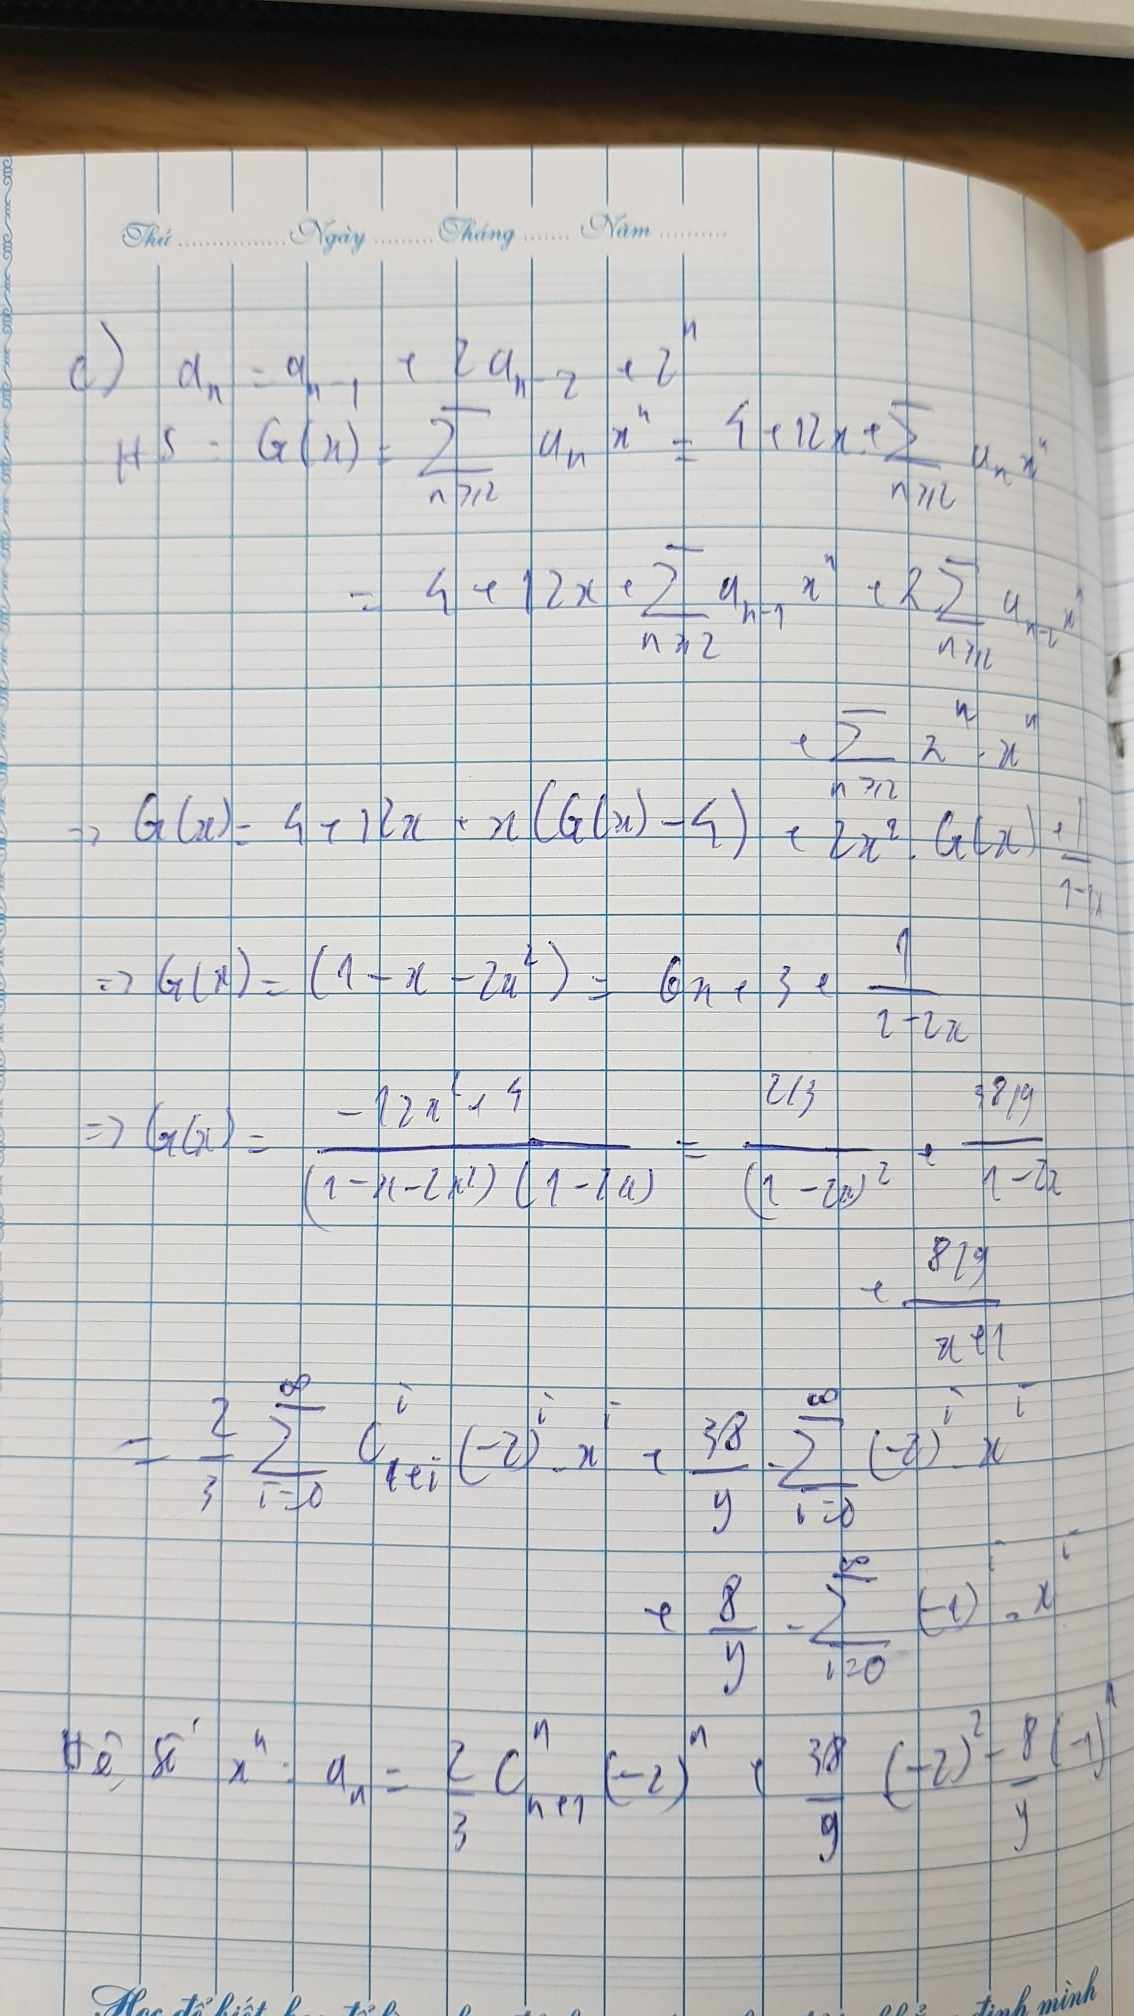 Thứ ................ Ngày ......... Tháng ....... Năm ..........
c) aₙ = aₙ₋₁ + 2aₙ₋₂ + 2ⁿ
HS : G(x) = ∑_{n≥2} aₙ xⁿ = 4 + 12x + ∑_{n≥2} aₙ xⁿ
= 4 + 12x + ∑_{n≥2} aₙ₋₁ xⁿ + 2∑_{n≥2} aₙ₋₂ xⁿ
+ ∑_{n≥2} 2ⁿ . xⁿ
=> G(x) = 4 + 12x + x(G(x) - 4) + 2x² . G(x) + 1/(1-2x)
=> G(x) = (1 - x - 2x²) = 6x + 3 + 1/(1-2x)
=> G(x) = (-12x² + 4)/((1-x-2x²)(1-2x)) = (2/3)/(1-2x)² + (38/9)/(1-2x)
+ (8/9)/(x+1)
= 2/3 ∑_{i=0}^∞ C_{1+i}^i (-2)^i . x^i + 38/9 . ∑_{i=0}^∞ (-2)^i . x^i
+ 8/9 . ∑_{i=0}^∞ (-1)^i . x^i
Hệ số xⁿ : aₙ = 2/3 C_{n+1}^n (-2)ⁿ + 38/9 (-2)² - 8/9 (-1)ⁿ
Học để biết
định mình